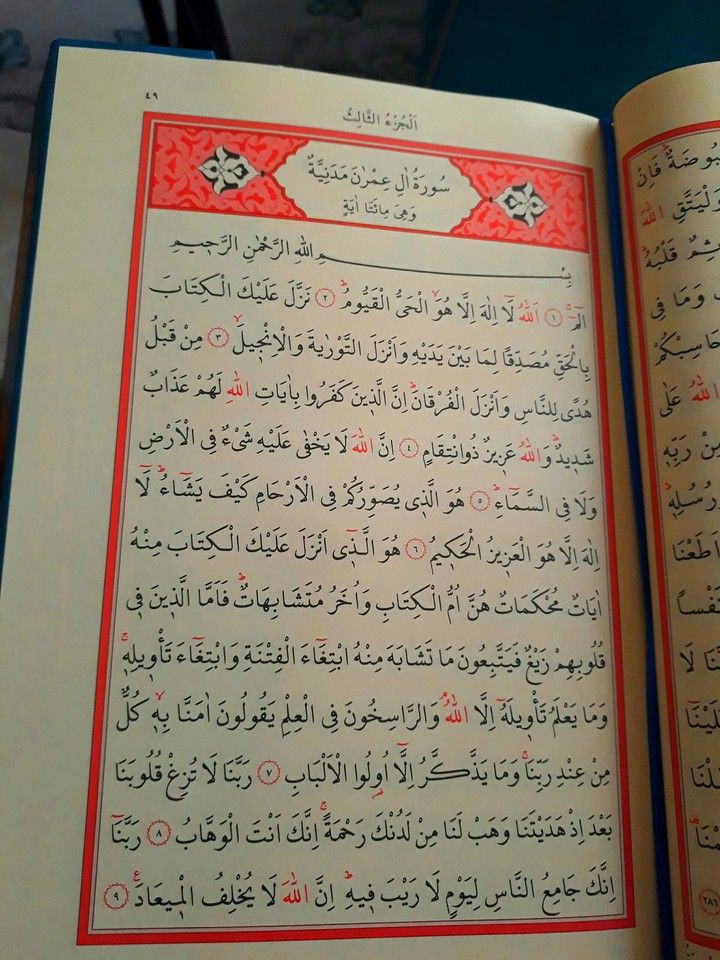 ٤٩
اَلْجُزْءُ الثَّالِثُ
سُورَةُ اٰلِ عِمْرٰنَ مَدَنِيَّةٌ
وَهِيَ مِائَتَا اٰيَةٍ
بِسْمِ اللهِ الرَّحْمٰنِ الرَّحِيمِ
الٓمٓ ١ اَللهُ لَٓا اِلٰهَ اِلَّا هُوَۙ الْحَيُّ الْقَيُّومُۜ ٢ نَزَّلَ عَلَيْكَ الْكِتَابَ
بِالْحَقِّ مُصَدِّقًا لِمَا بَيْنَ يَدَيْهِ وَاَنْزَلَ التَّوْرٰيةَ وَالْاِنْجِيلَۙ ٣ مِنْ قَبْلُ
هُدًى لِلنَّاسِ وَاَنْزَلَ الْفُرْقَانَۜ اِنَّ الَّذِينَ كَفَرُوا بِاٰيَاتِ اللهِ لَهُمْ عَذَابٌ
شَدِيدٌۜ وَاللهُ عَزِيزٌ ذُوانْتِقَامٍ ٤ اِنَّ اللهَ لَا يَخْفٰى عَلَيْهِ شَيْءٌ فِي الْاَرْضِ
وَلَا فِي السَّمَٓاءِۜ ٥ هُوَ الَّذِي يُصَوِّرُكُمْ فِي الْاَرْحَامِ كَيْفَ يَشَٓاءُۜ لَٓا
اِلٰهَ اِلَّا هُوَ الْعَزِيزُ الْحَكِيمُ ٦ هُوَ الَّذِٓي اَنْزَلَ عَلَيْكَ الْكِتَابَ مِنْهُ
اٰيَاتٌ مُحْكَمَاتٌ هُنَّ اُمُّ الْكِتَابِ وَاُخَرُ مُتَشَابِهَاتٌۜ فَاَمَّا الَّذِينَ فِي
قُلُوبِهِمْ زَيْغٌ فَيَتَّبِعُونَ مَا تَشَابَهَ مِنْهُ ابْتِغَٓاءَ الْفِتْنَةِ وَابْتِغَٓاءَ تَأْوِيلِهِۚ
وَمَا يَعْلَمُ تَأْوِيلَهُٓ اِلَّا اللهُۢ وَالرَّاسِخُونَ فِي الْعِلْمِ يَقُولُونَ اٰمَنَّا بِهِۙ كُلٌّ
مِنْ عِنْدِ رَبِّنَاۚ وَمَا يَذَّكَّرُ اِلَّٓا اُولُوا الْاَلْبَابِ ٧ رَبَّنَا لَا تُزِغْ قُلُوبَنَا
بَعْدَ اِذْ هَدَيْتَنَا وَهَبْ لَنَا مِنْ لَدُنْكَ رَحْمَةًۚ اِنَّكَ اَنْتَ الْوَهَّابُ ٨ رَبَّنَٓا
اِنَّكَ جَامِعُ النَّاسِ لِيَوْمٍ لَا رَيْبَ فِيهِۜ اِنَّ اللهَ لَا يُخْلِفُ الْمِيعَادَ ٩
فَاِنْ
وَلْيَتَّقِ اللهَ
قَلْبُهُ
وَمَا فِي
اللهُ عَلٰى
مِنْ رَبِّهِ
اَطَعْنَا
نَفْسًا
لَا
٢٨٦